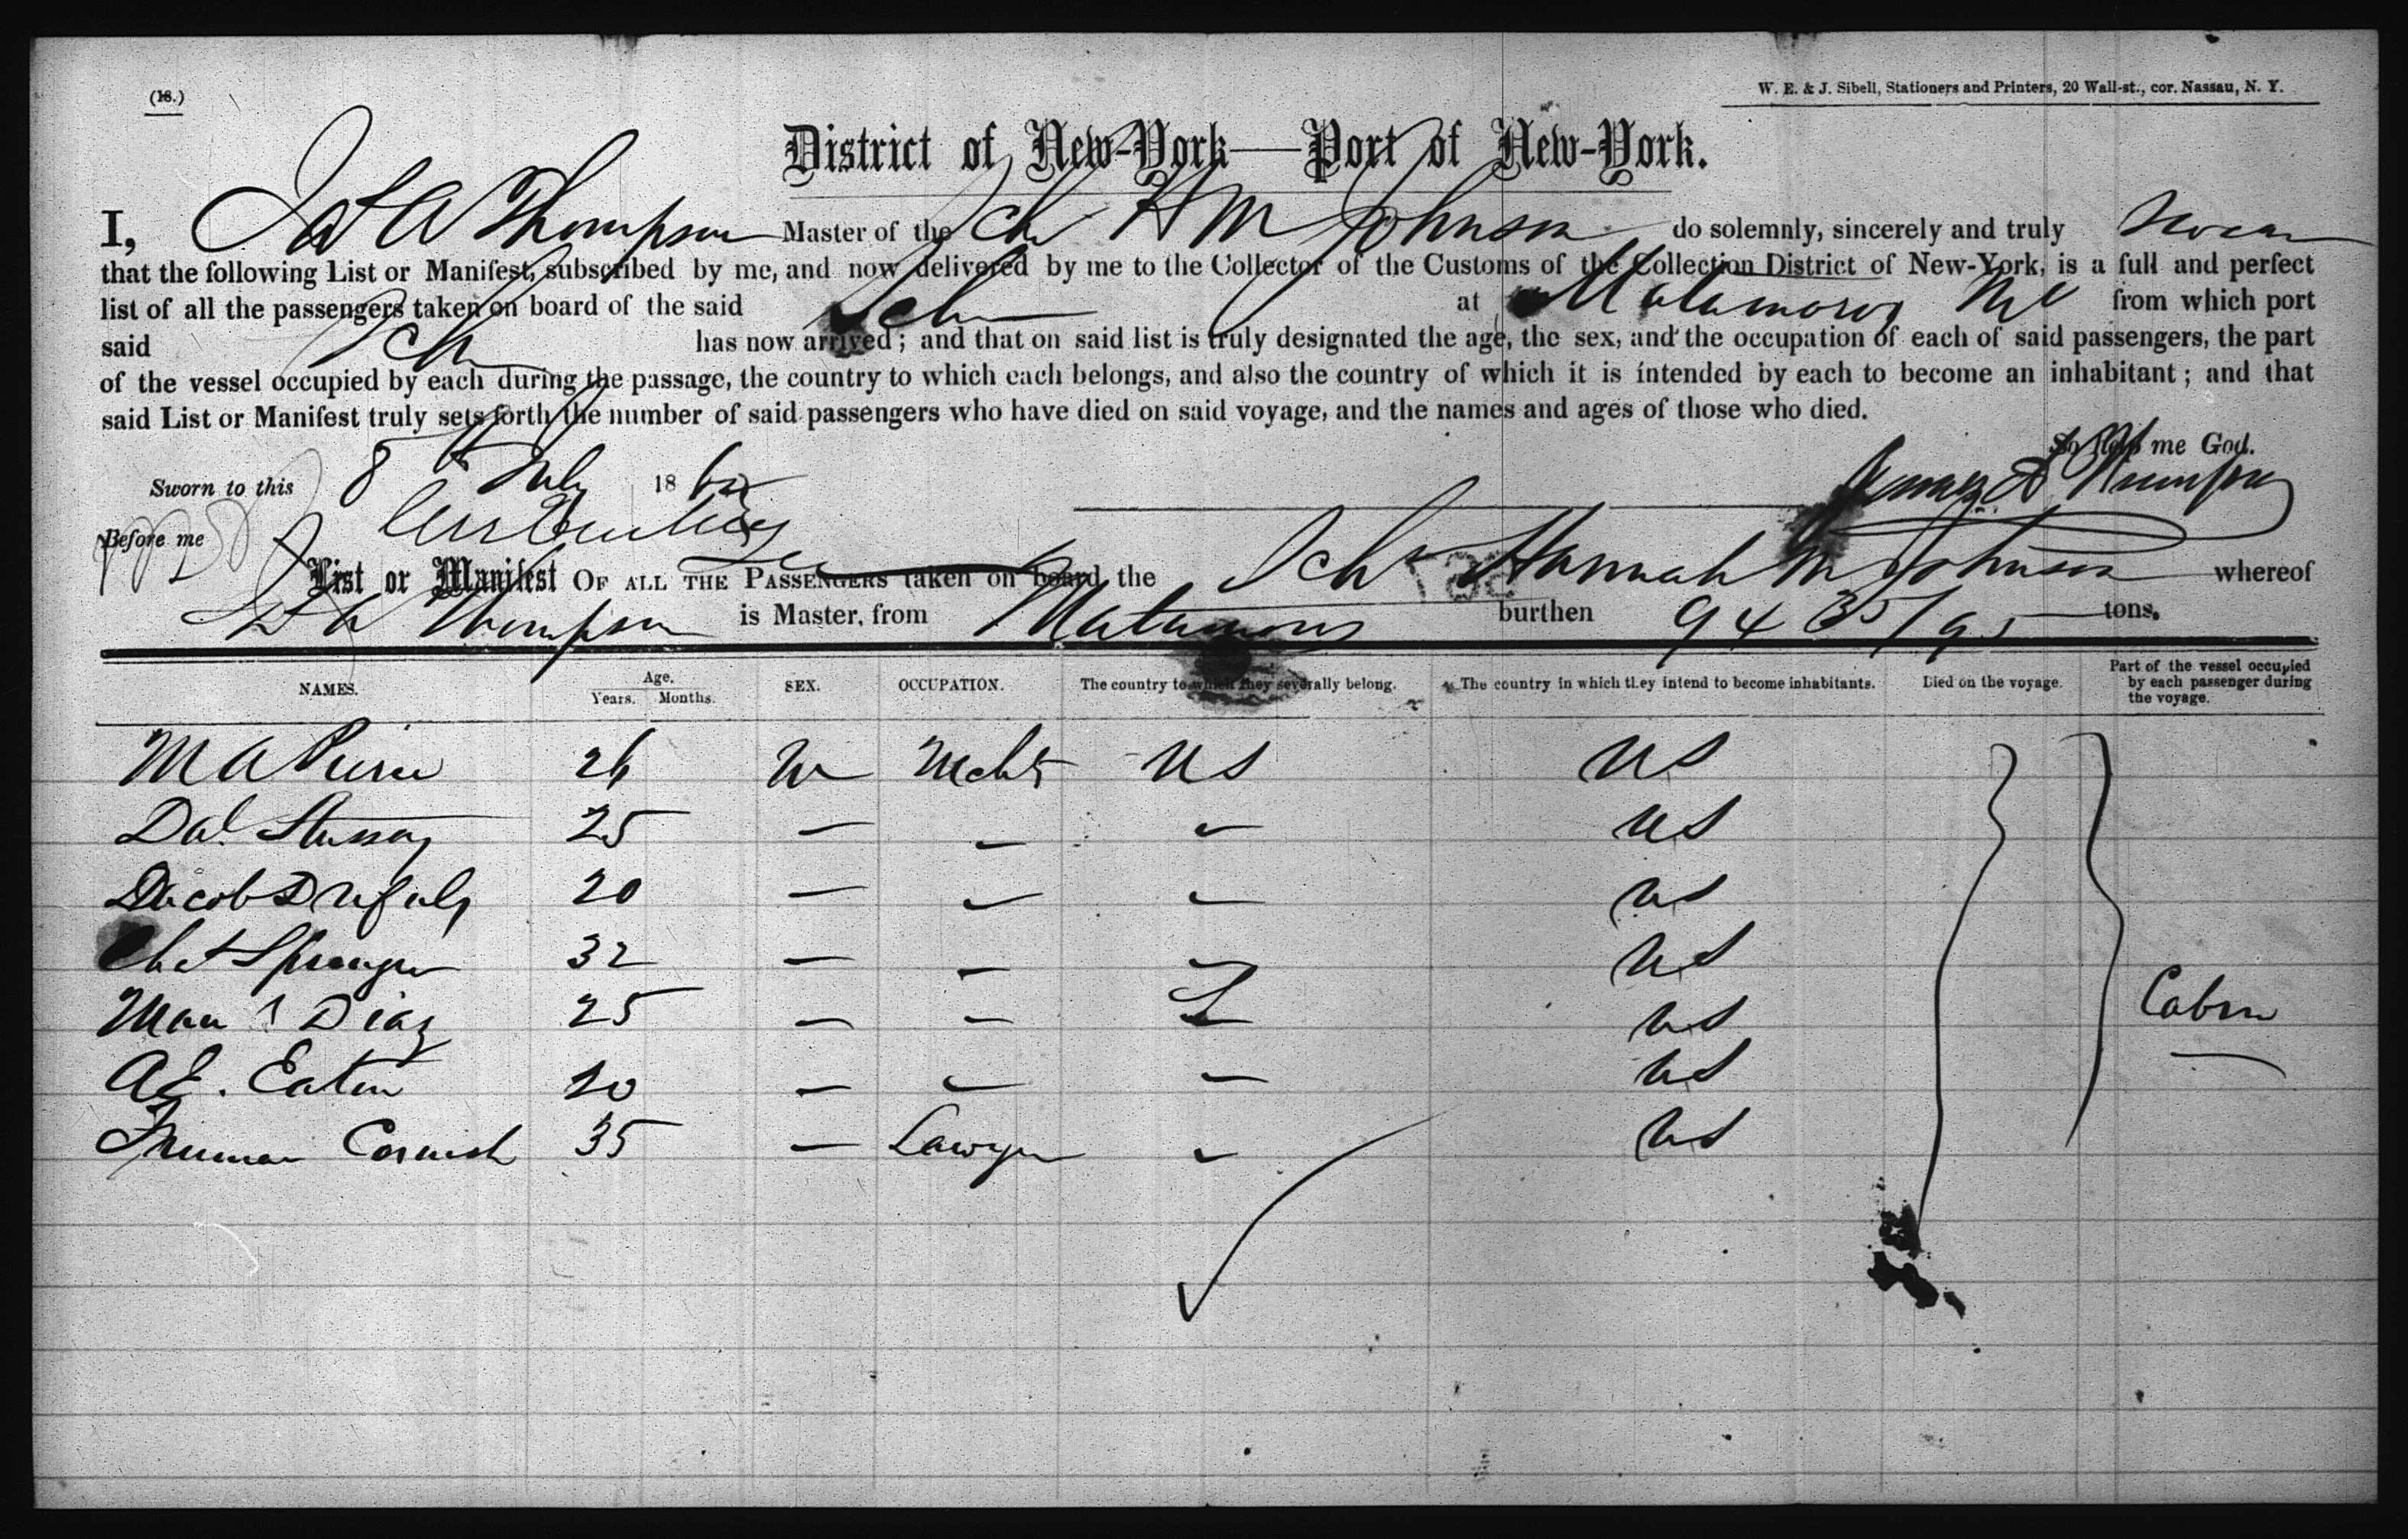 (18.)
W. E. & J. Sibell, Stationers and Printers, 20 Wall-st., cor. Nassau, N. Y.
District of New-York—Port of New-York.
I, Jas A Thompson Master of the Schr H M Johnson do solemnly, sincerely and truly swear
that the following List or Manifest, subscribed by me, and now delivered by me to the Collector of the Customs of the Collection District of New-York, is a full and perfect
list of all the passengers taken on board of the said Schr at Matamoros from which port
said Schr has now arrived; and that on said list is truly designated the age, the sex, and the occupation of each of said passengers, the part
of the vessel occupied by each during the passage, the country to which each belongs, and also the country of which it is intended by each to become an inhabitant; and that
said List or Manifest truly sets forth the number of said passengers who have died on said voyage, and the names and ages of those who died.
So help me God.
Sworn to this 8th July 186
James A Thompson
Before me
List or Manifest OF ALL THE PASSENGERS taken on board the Schr Hannah M Johnson whereof
J A Thompson is Master, from Matamoros burthen 94 35/95 tons.
NAMES. Age. Years. Months. SEX. OCCUPATION. The country to which they severally belong. The country in which they intend to become inhabitants. Died on the voyage. Part of the vessel occupied by each passenger during the voyage.
M A 26 M Mcht US US
25 — — — US
Jacob 20 — — — US
Chas 32 — — — US
Manl Diaz 25 — — — US Cabin
A E. Eaton 20 — — — US
Truman Cornish 35 — Lawyer — US